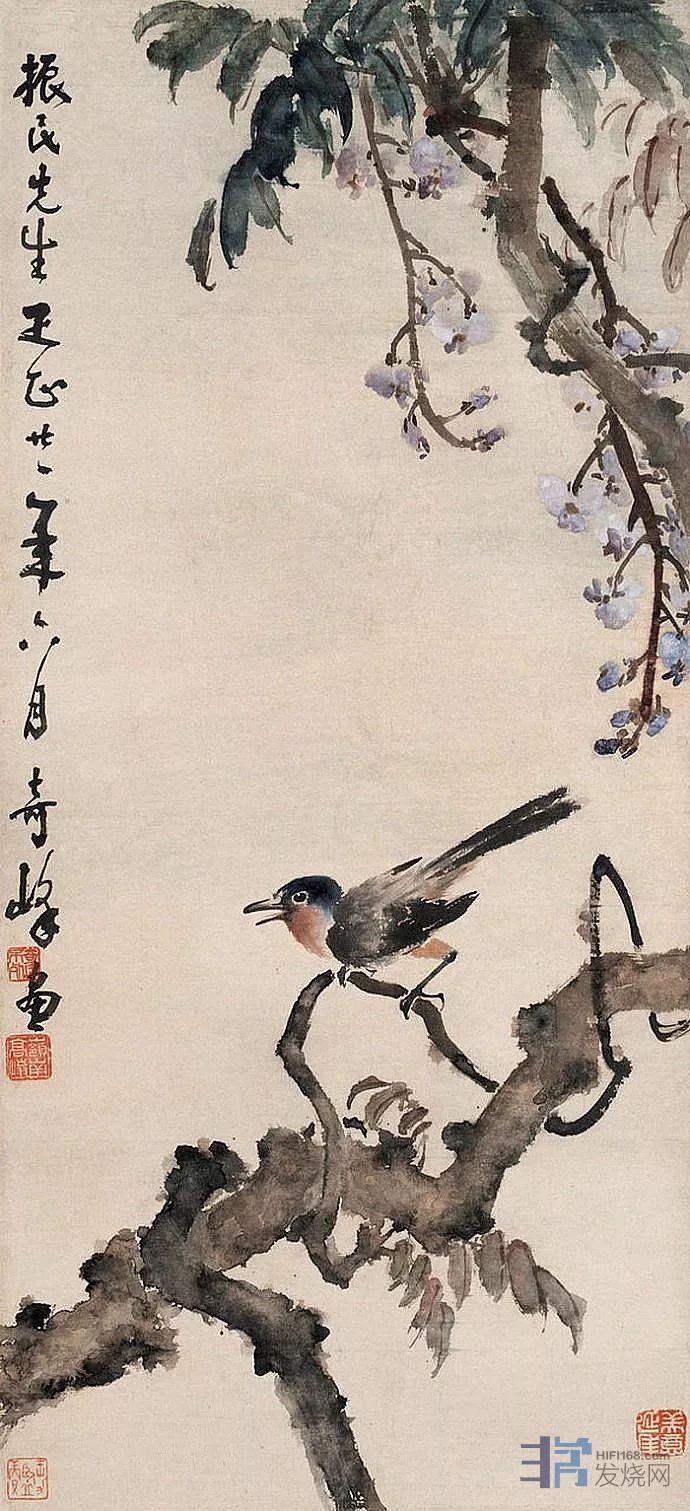 振民先生疋正廿一年六月奇峰畫
HIFI168.com
发烧网